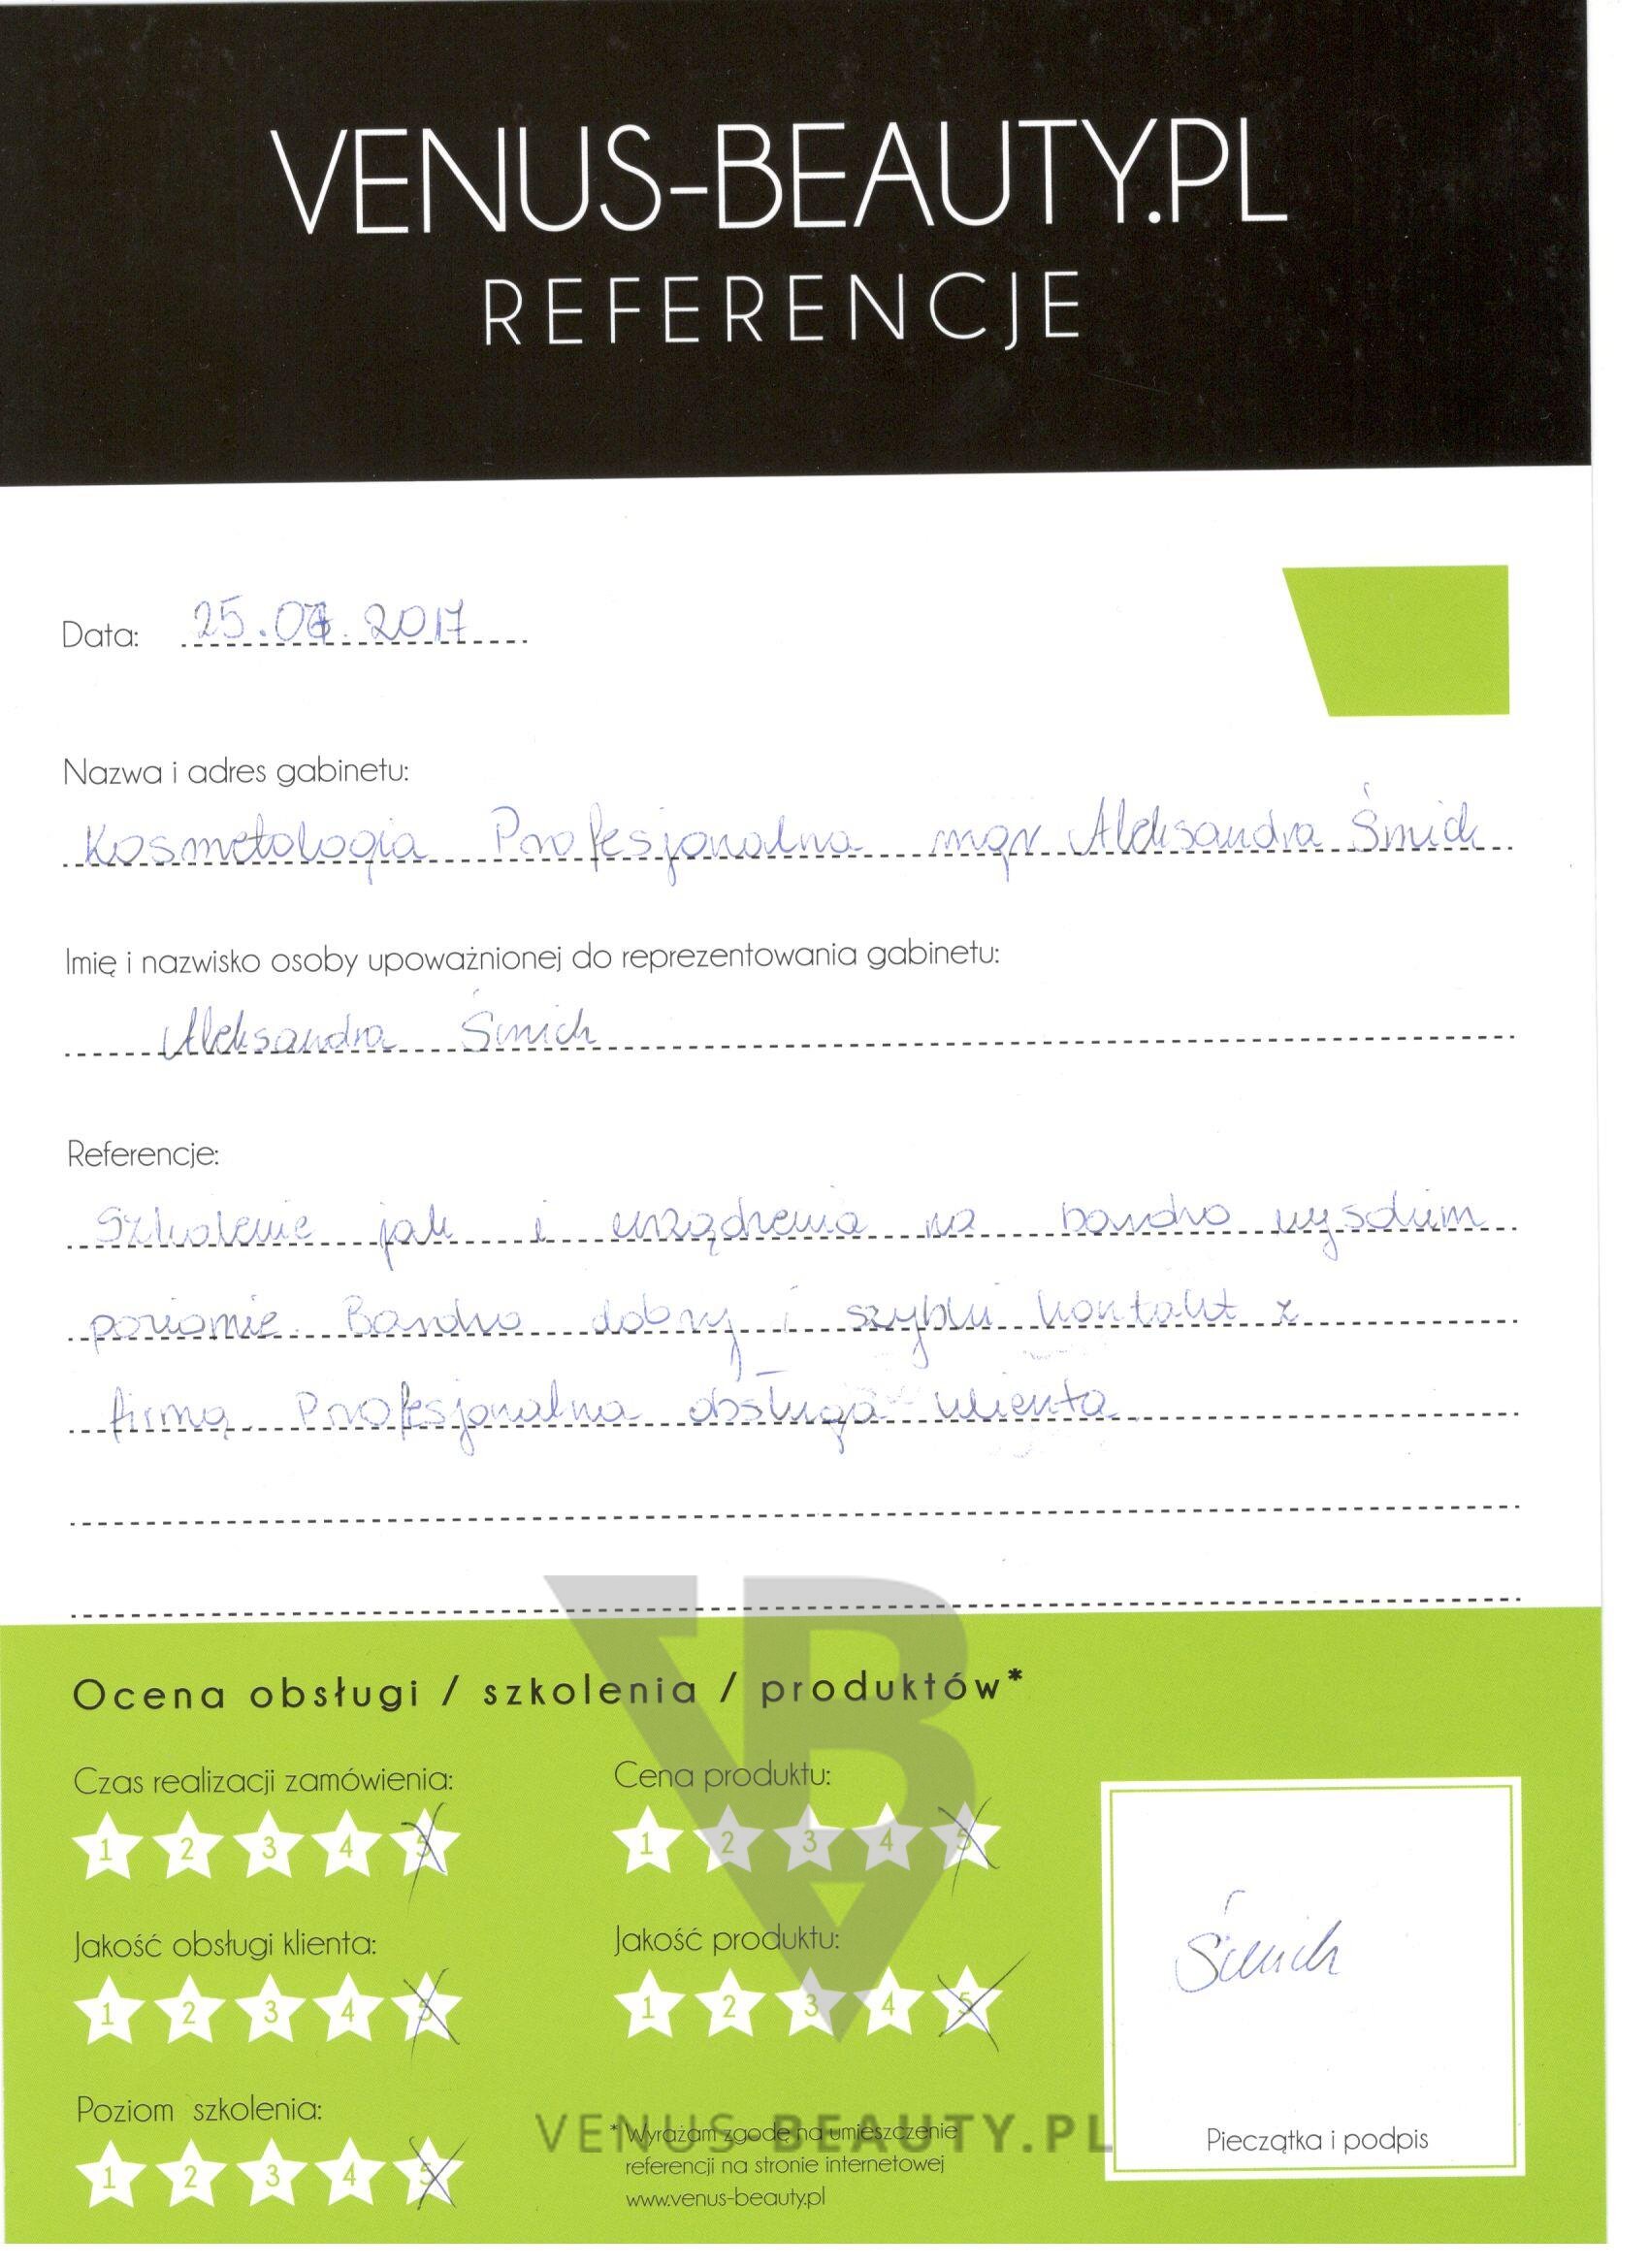 VENUS-BEAUTY.PL
REFERENCJE
Data: 25. 2017
Nazwa i adres gabinetu:
Kosmetologia Profesjonalna mgr Aleksandra Śmich
Imię i nazwisko osoby upoważnionej do reprezentowania gabinetu:
Aleksandra Śmich
Referencje:
Szkolenie jak i urządzenia na bardzo wysokim
poziomie. Bardzo dobry i szybki kontakt z
firmą. Profesjonalna obsługa klienta.
Ocena obsługi / szkolenia / produktów*
Czas realizacji zamówienia:
1 2 3 4 5
Cena produktu:
1 2 3 4 5
Jakość obsługi klienta:
1 2 3 4 5
Jakość produktu:
1 2 3 4 5
Poziom szkolenia:
1 2 3 4 5
* Wyrażam zgodę na umieszczenie
referencji na stronie internetowej
www.venus-beauty.pl
Śmich
Pieczątka i podpis
VB
VENUS-BEAUTY.PL